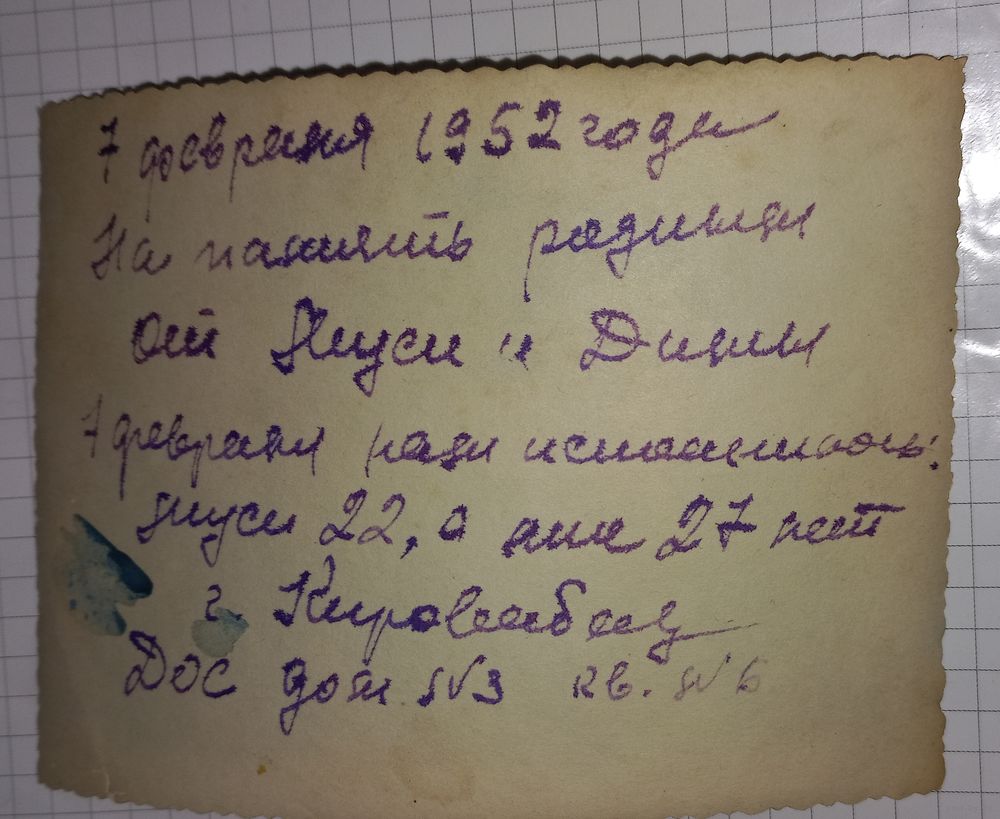 7 февраля 1952 года
На память родным
от Люси и Димы
7 февраля нам исполнилось:
Люси 22, а мне 27 лет
г. Кировабад
ДОС дом №3 кв. №6